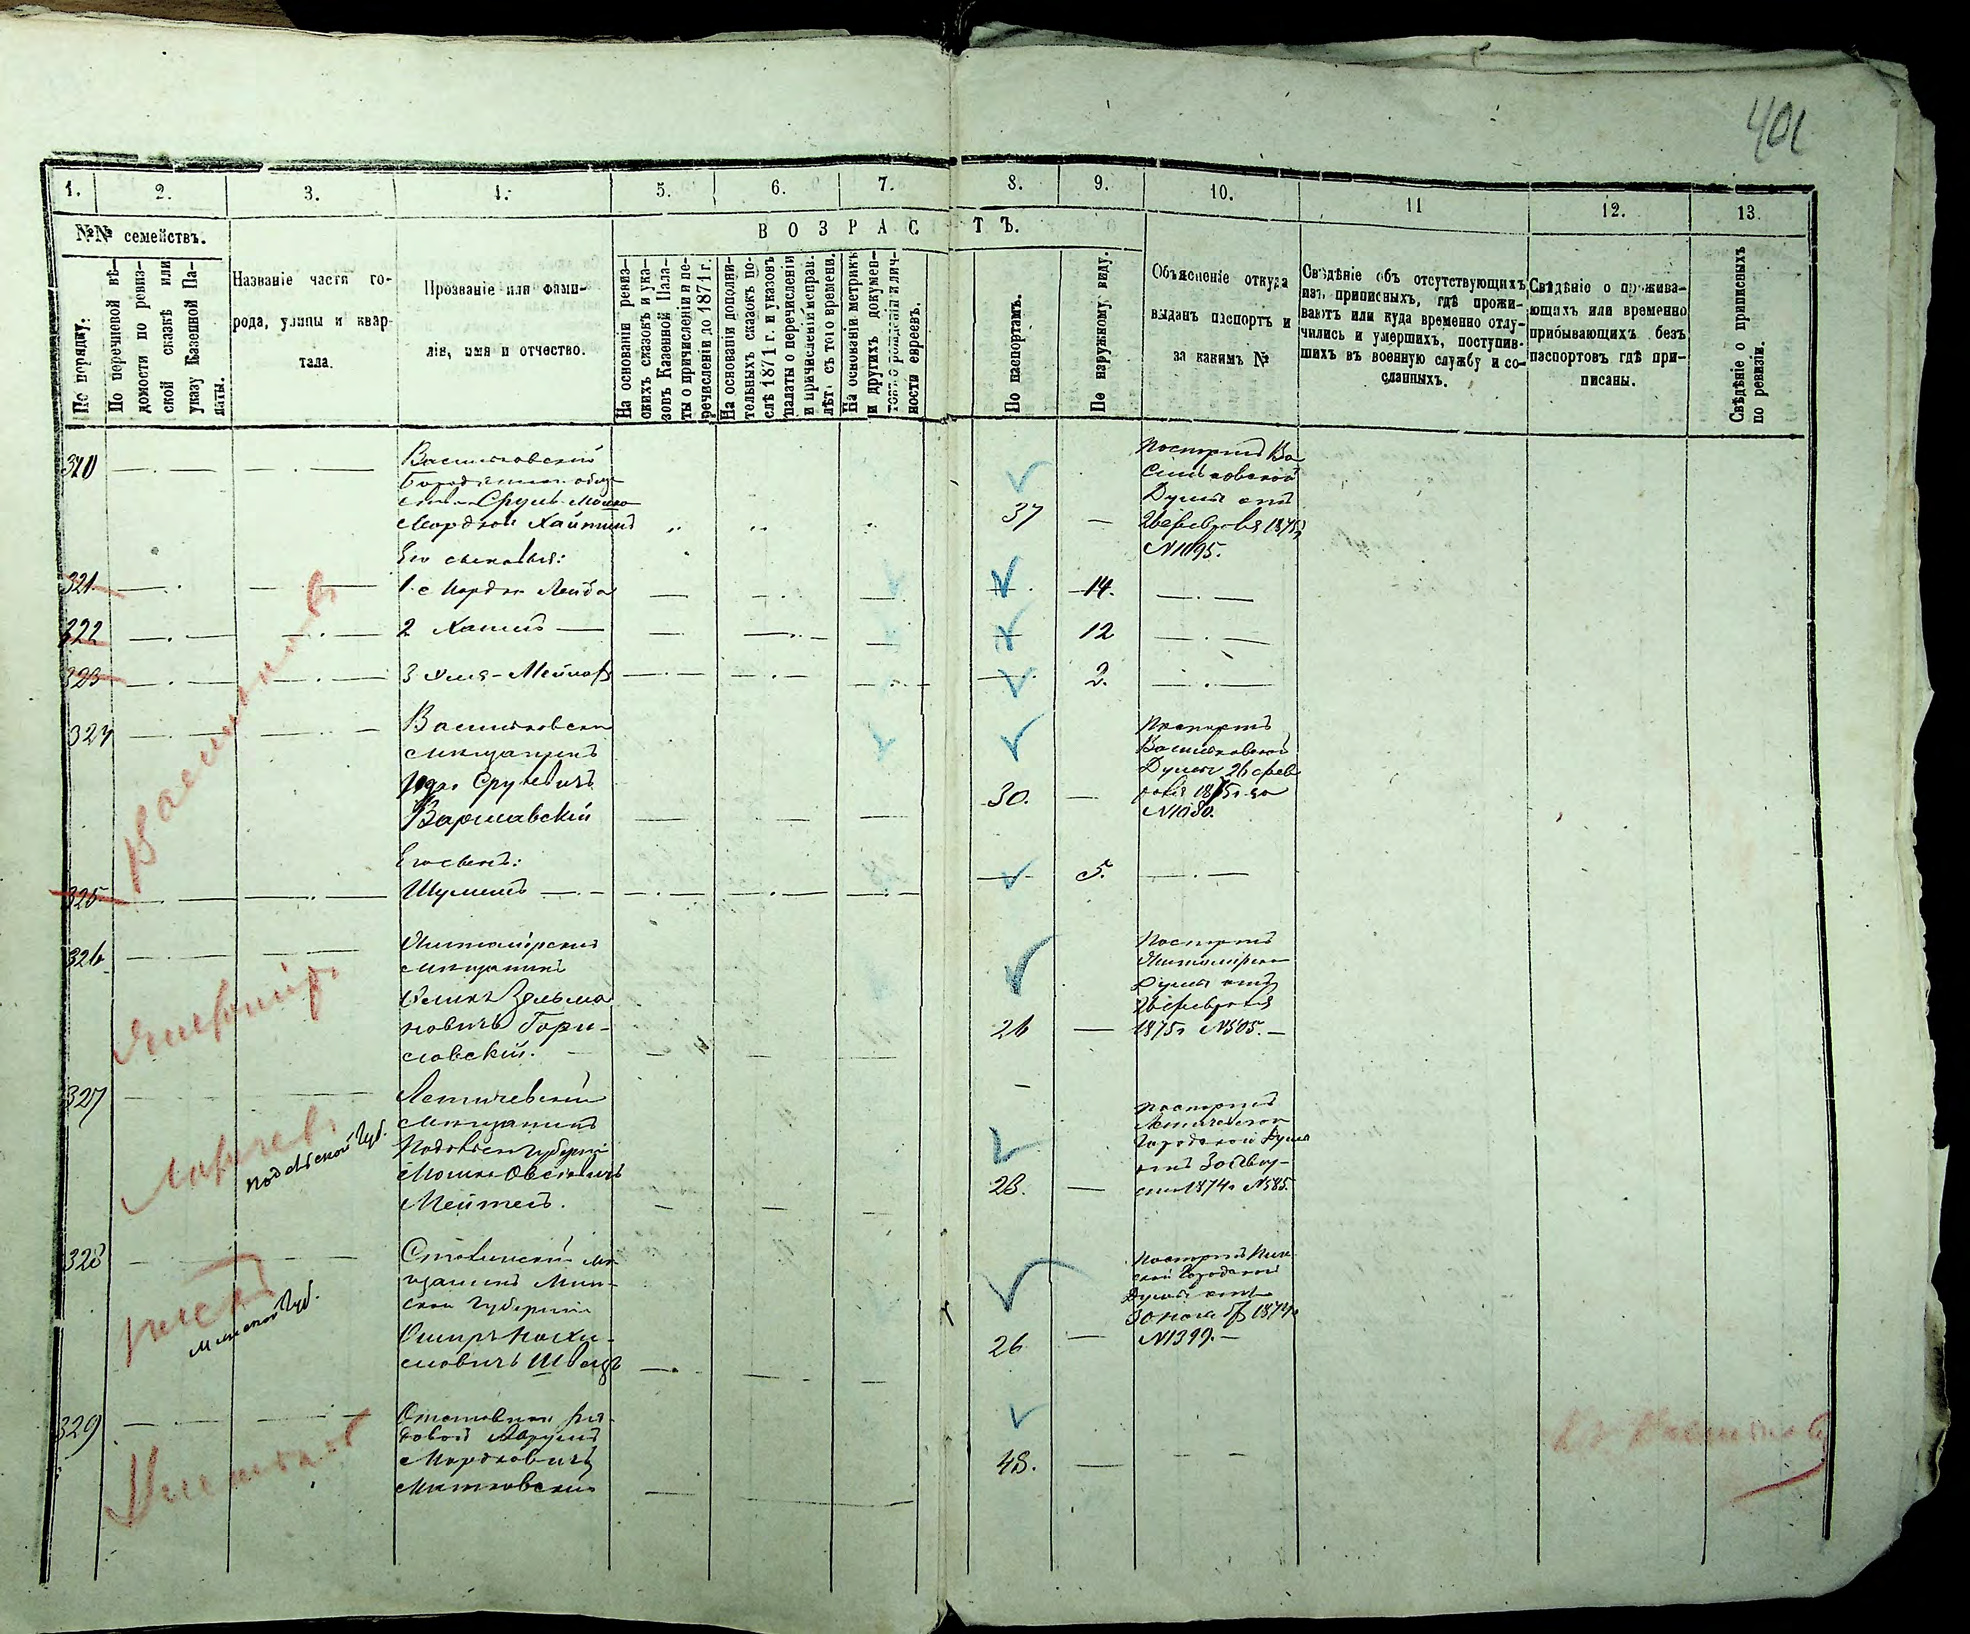 401
1.
2.
3.
4.
5.
6.
7.
8.
9.
10.
11
12.
13.
№№ семействъ.
ВОЗРАСТЪ.
По порядку.
По перечневой вѣ-
домости по ревиз-
ской сказкѣ или
указу Казенной Па-
латы.
Названіе части го-
рода, улицы и квар-
тала.
Прозваніе или фами-
лія, имя и отчество.
На основаніи ревиз-
скихъ сказокъ и ука-
зовъ Казенной Пала-
ты о причисленіи и пе-
речисленіи до 1871 г.
На основаніи дополни-
тельныхъ сказокъ по-
слѣ 1871 г. и указовъ
палаты о перечисленіи
и причисленіи исправ.
лѣт съ того времени.
На основаніи метрикъ
и другихъ докумен-
товъ о рожденіи и лич-
ности евреевъ.
По паспортамъ.
По наружному виду.
Объясненіе откуда
выданъ паспортъ и
за какимъ №
Свѣдѣніе объ отсутствующихъ
изъ приписныхъ, гдѣ прожи-
ваютъ или куда временно отлу-
чились и умершихъ, поступив-
шихъ въ военную службу и со-
сланныхъ.
Свѣдѣніе о прожива-
ющихъ или временно
прибывающихъ безъ
паспортовъ гдѣ при-
писаны.
Свѣдѣніе о приписныхъ
по ревизіи.
320
Васильковскій
Срулъ Мошко
Мордковъ Хаитинъ
37
Паспортъ Ва
сильковской
Думы отъ
26 февраля 1875 г
№1095.
Его сыновья:
321
1. Мордко Лейба
14.
322
2 Хаимъ
12
323
3 Мейлахъ
2.
Васильковъ
324
Васильковскій
мѣщанинъ
Срулевичъ
Варшавскій
30.
Паспортъ
Васильковской
Думы 26 фев
раля 1875 г. за
№1080.
Его сынъ:
325
Шулимъ
5.
326
Житомірскій
мѣщанинъ
Зельма
новичъ Гори-
словскій.
26
Паспортъ
Житомірской
Думы отъ
26 февраля
1875 г №505.
Житоміръ
327
Летичевскій
мѣщанинъ
Подольск. губерніи
Мошко
Мейтесъ.
28.
Паспортъ
Летичевской
Городской Думы
отъ 30 Авгу-
ста 1874 г №585.
Летичев.
Подольской Губ.
328
Столинскій мѣ
щанинъ Мин-
ской Губерніи
Ошеръ
Шварцъ
26
Паспортъ Пин
ской Городской
Думы отъ
30 ноября 1874 г
№1399.
Пинскъ
Минской Губ.
329
Отставной ря
довой
Мордковичъ
Митковскій
48.